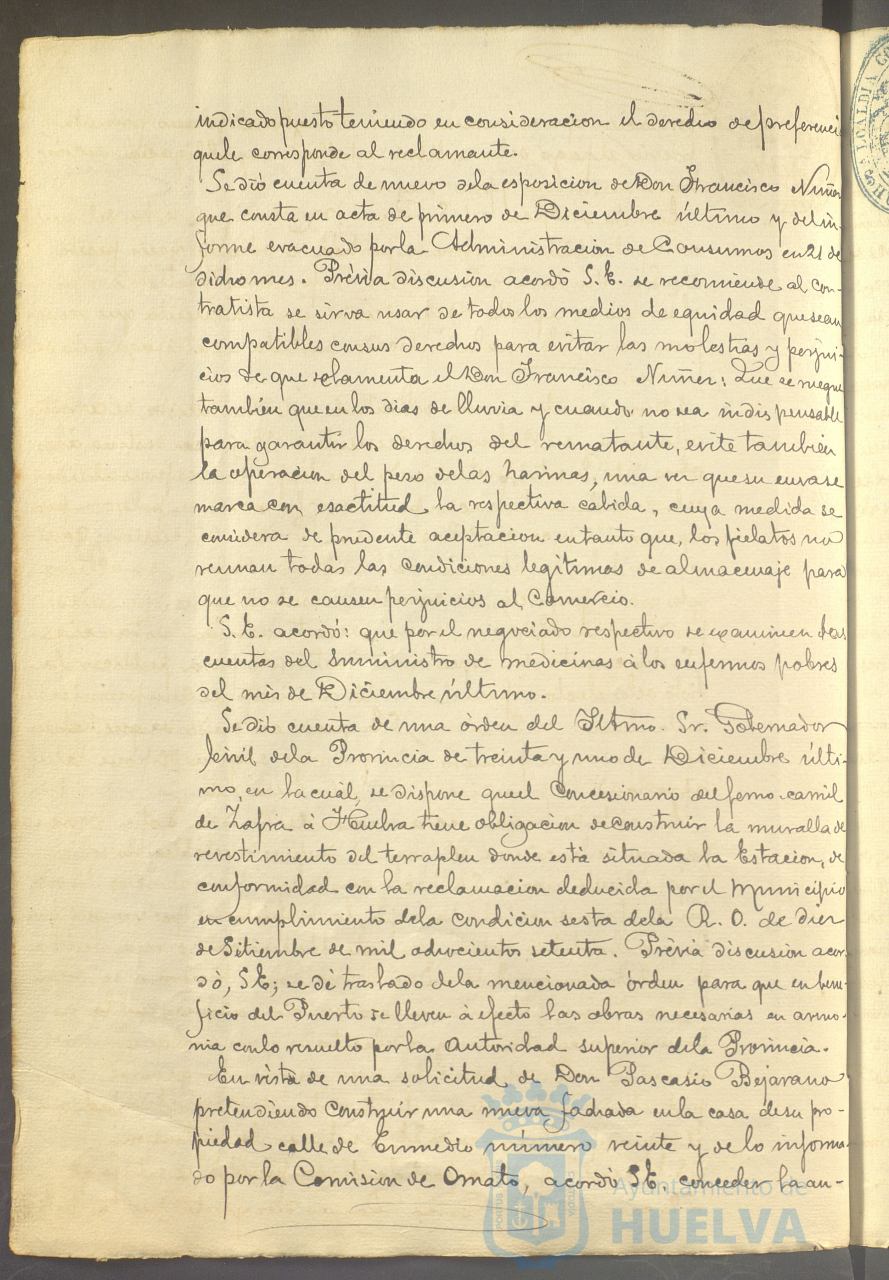 indicado puesto teniendo en consideracion el derecho de preferenci
que le corresponde al reclamante.
Se dió cuenta de nuevo de la esposicion de Don Francisco Nuñez
que consta en acta de primero de Diciembre último y del in-
forme evacuado por la Administracion de Consumos en 21 de
dicho mes. Prévia discusion acordó S.E. se recomiende al con-
tratista se sirva usar de todos los medios de equidad que sean
compatibles con sus derechos para evitar las molestias y perjui-
cios de que se lamenta el Don Francisco Nuñez: Que se ruegue
tambien que en los dias de lluvia y cuando no sea indispensable
para garantir los derechos del rematante, evite tambien
la operacion del peso de las harinas, una vez que su envase
marca con esactitud la respectiva cabida, cuya medida se
considera de prudente aceptacion en tanto que, los fielatos no
reunan todas las condiciones legítimas de almacenaje para
que no se causen perjuicios al Comercio.
S.E. acordó: que por el negociado respectivo se examinen las
cuentas del suministro de medicinas á los enfermos pobres
del mes de Diciembre último.
Se dió cuenta de una órden del Iltmo. Sr. Gobernador
Civil de la Provincia de treinta y uno de Diciembre últi-
mo, en la cual, se dispone que el Concesionario del ferro-carril
de Zafra á Huelva tiene obligacion de construir la muralla de
revestimiento del terraplen donde está situada la Estacion, de
conformidad con la reclamacion deducida por el Municipio
en cumplimiento de la condicion sesta de la R. O. de diez
de Setiembre de mil ochocientos setenta. Prévia discusion acor-
dó, S.E; se dé traslado de la mencionada órden para que en bene-
ficio del Puerto se lleven á efecto las obras necesarias en armo-
nia con lo resuelto por la Autoridad superior de la Provincia.
En vista de una solicitud de Don Pascasio Bejarano
pretendiendo construir una nueva fachada en la casa de su pro-
piedad calle de Enmedio número veinte y de lo informa-
do por la Comision de Ornato, acordó S.E. conceder la au-
ALCALDIA CO
Ayuntamiento de
HUELVA